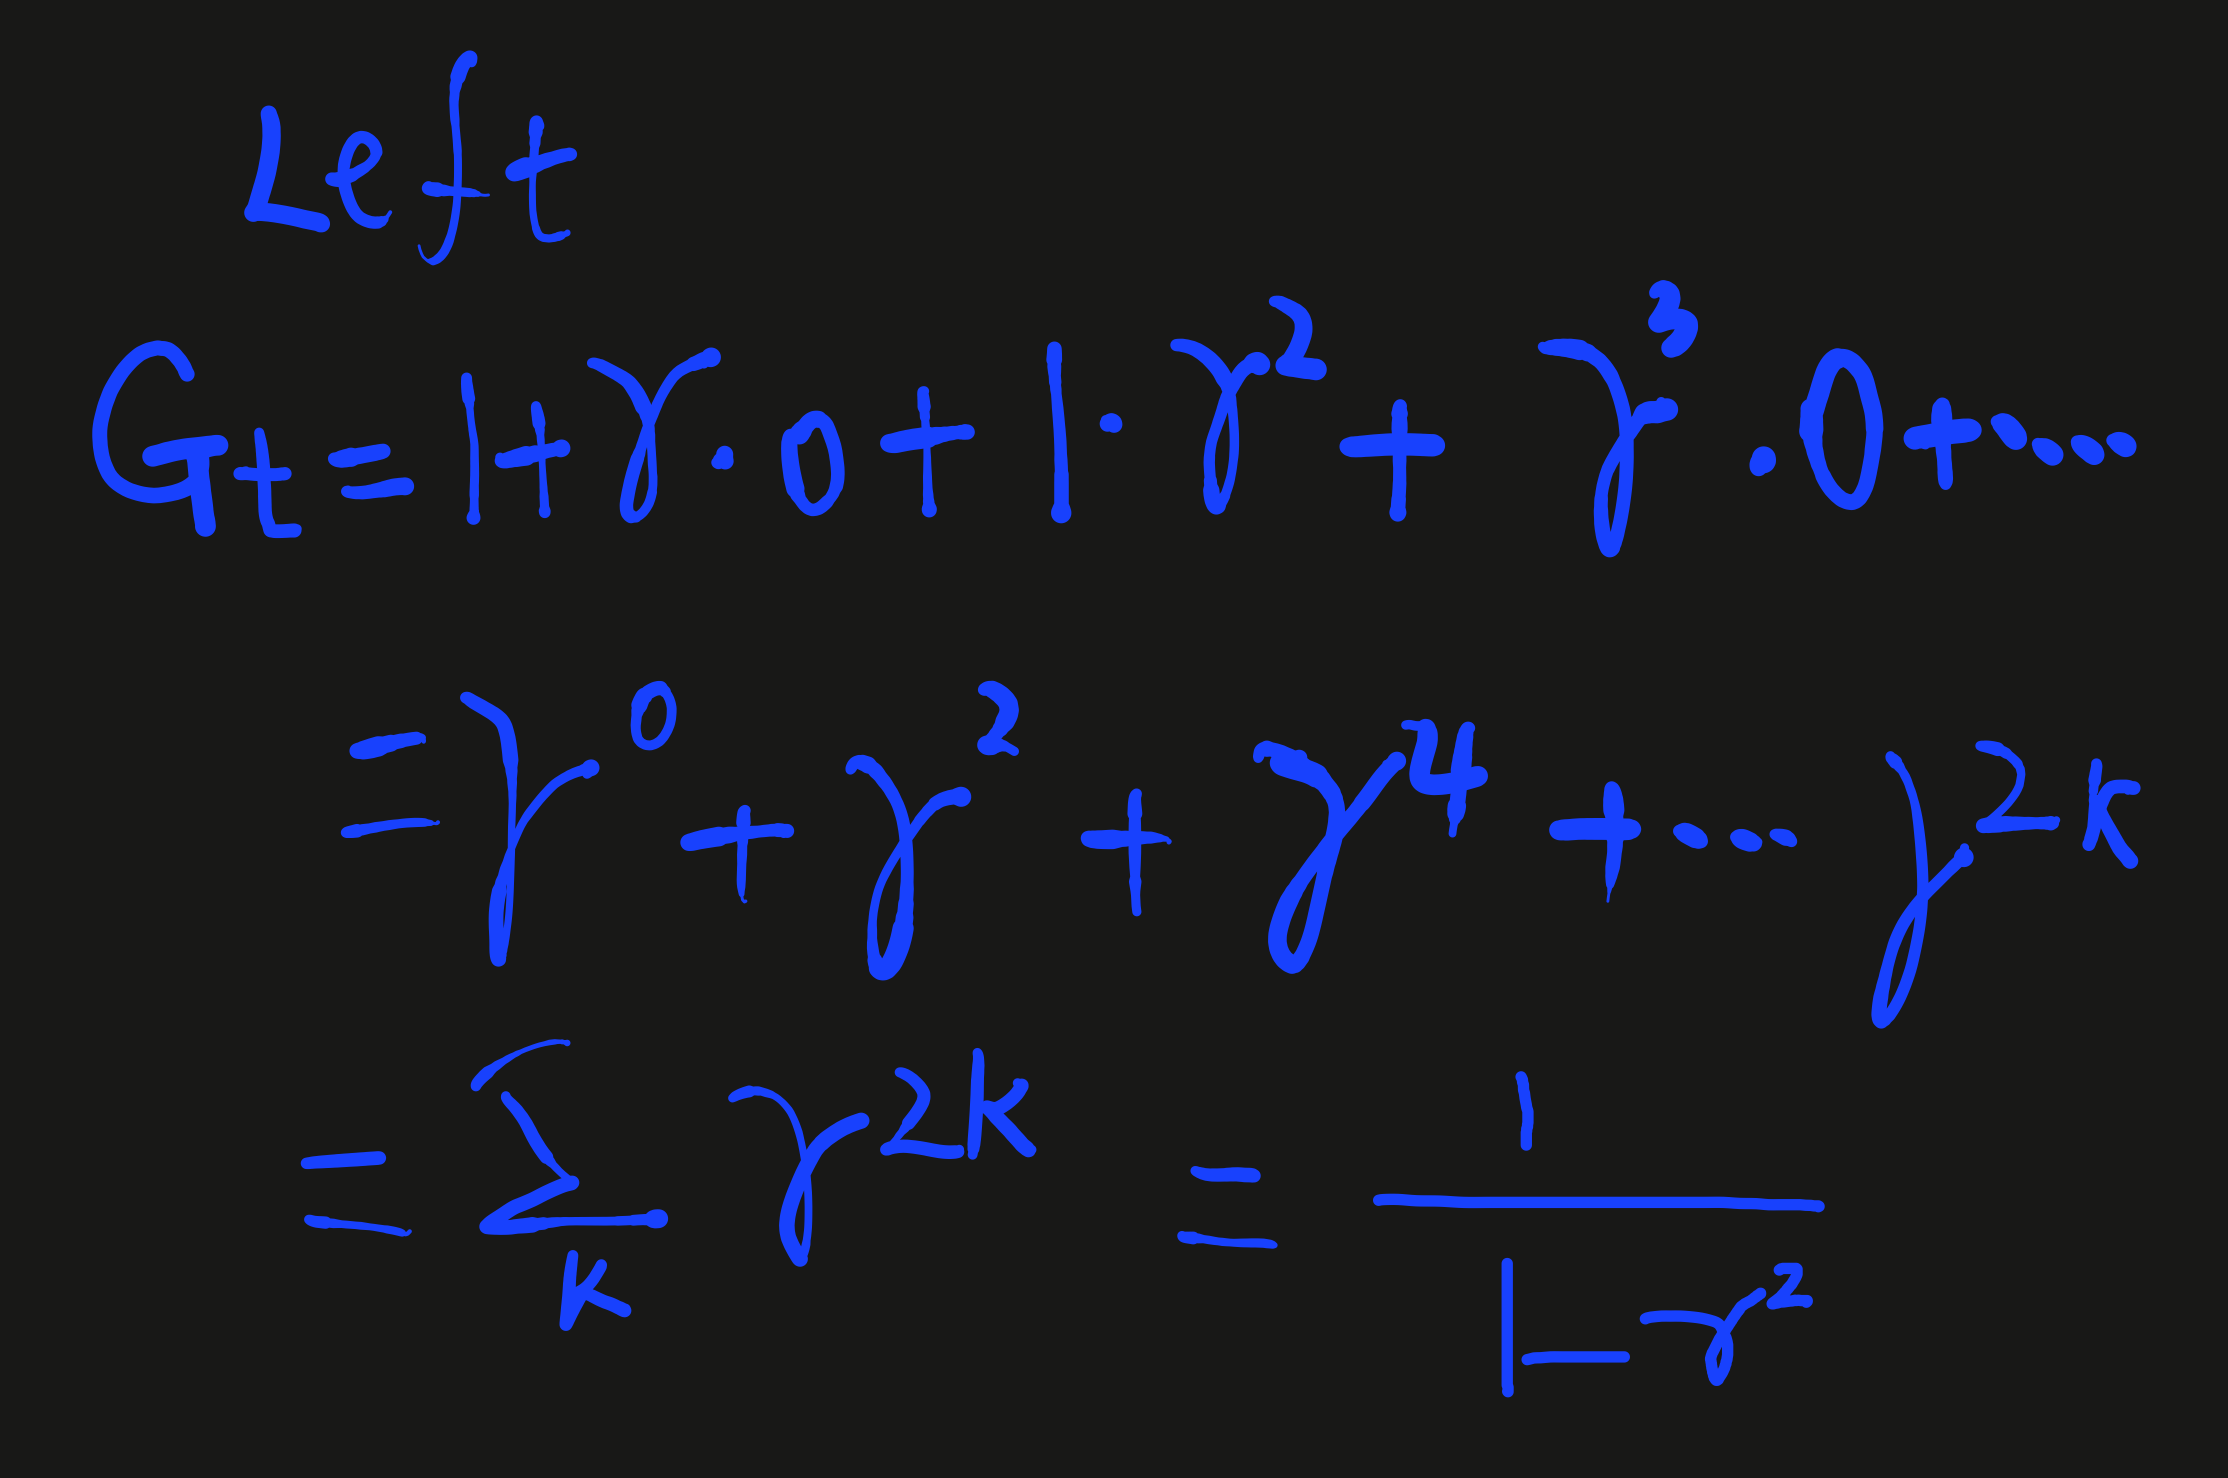 Left
G_t = 1 + γ · 0 + 1 · γ^2 + γ^3 · 0 + ....
= γ^0 + γ^2 + γ^4 + ... γ^{2k}
= Σ_k γ^{2k} = 1 / (1 - γ^2)